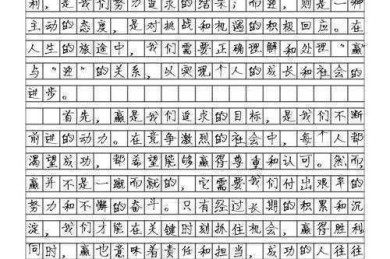 利，是我们努力追求的结果；而迎，则是一种
主动的态度，是对挑战和机遇的积极回应。在
人生的旅途中，我们需要正确理解和处理“赢”
与“迎”的关系，以实现个人的成长和社会的
进步。
首先，赢是我们追求的目标，是我们不断
前进的动力。在竞争激烈的社会中，每个人都
渴望成功，都希望能够赢得尊重和认可。然而
赢并不是一蹴而就的，它需要我们付出艰辛的
努力和不懈的奋斗。只有经过长期的积累和沉
淀，我们才能在关键时刻抓住机会，赢得胜利
同时，赢也意味着责任和担当，成功的人往往